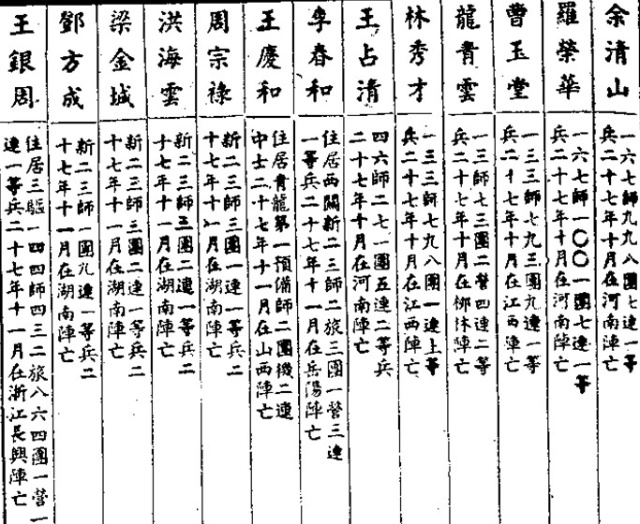 余清山
一六七師九九八團七連一等
兵二十七年十月在河南陣亡
羅榮華
一六七師一〇〇一團七連一等
兵二十七年十月在河南陣亡
曹玉堂
一三三師七九三團九連一等
兵二十七年十月在江西陣亡
龍青雲
一三師七三團二營四連二等
兵二十七年十月在柳林陣亡
林秀才
一三三師七九八團一連上等
兵二十七年十月在江西陣亡
王占清
四六師二七一團五連二等兵
二十七年十月在河南陣亡
李春和
住居西關新二三師二旅三團一營三連
一等兵二十七年十一月在岳陽陣亡
王慶和
住居青龍第一預備師二團機二連
中士二十七年十一月在山西陣亡
周宗祿
新二三師三團一連一等兵二
十七年十一月在湖南陣亡
洪海雲
新二三師三團二連一等兵二
十七年十一月在湖南陣亡
梁金城
新二三師三團二連一等兵二
十七年十一月在湖南陣亡
鄧方成
新二三師一團九連一等兵二
十七年十一月在湖南陣亡
王銀周
住居三驅一四四師四三二旅八六四團一營一
連一等兵二十七年十一月在浙江長興陣亡